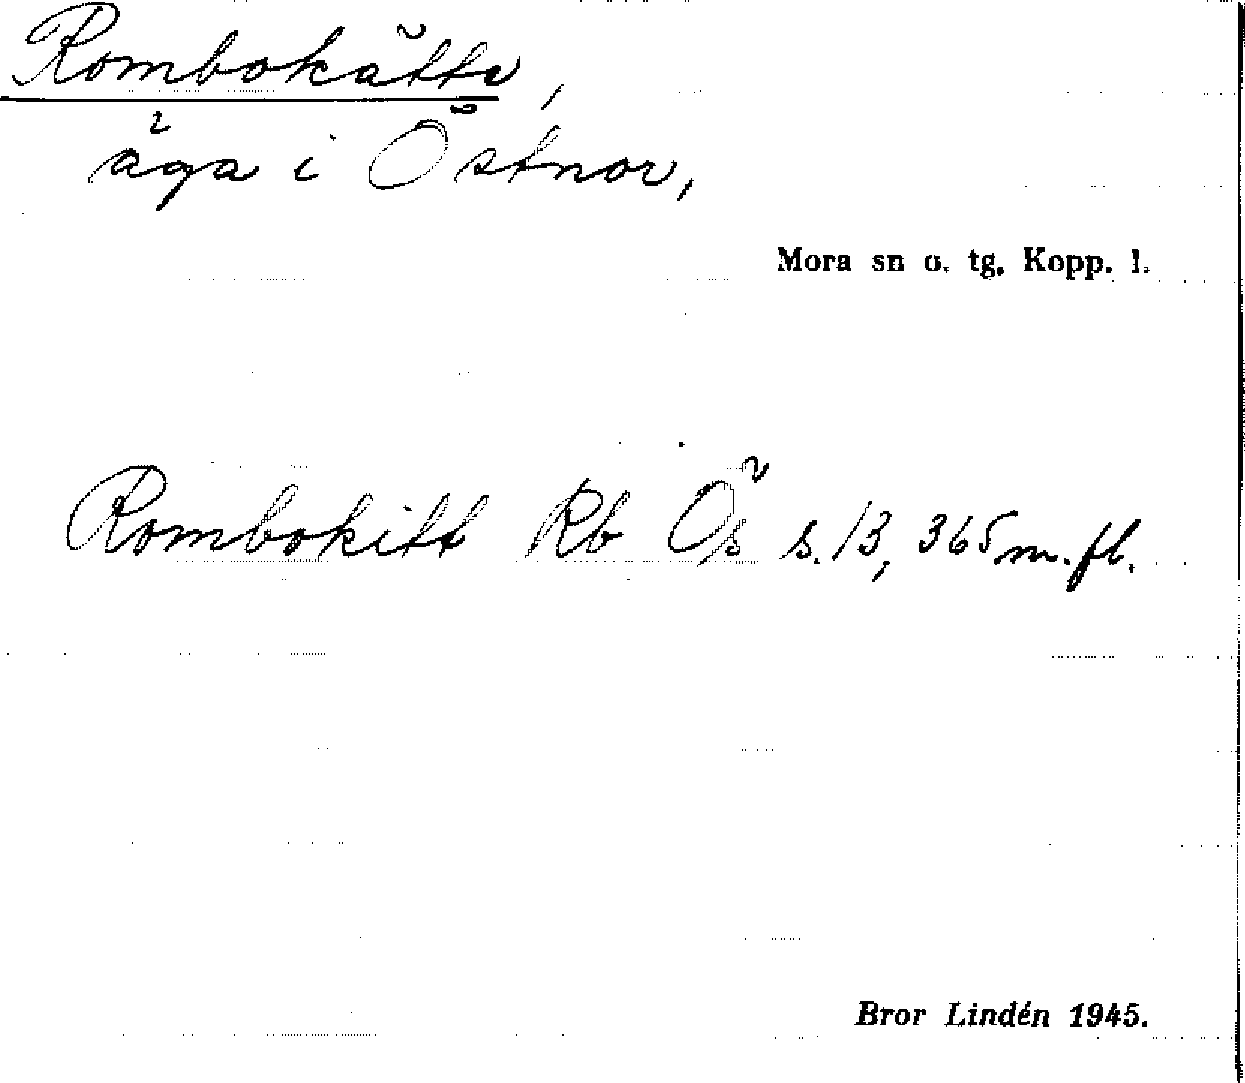 Rombokätte,
äga i Östnor,
Mora sn o. tg. Kopp. l.
Rombokitt Rb Ös s. 13, 365 m. fl.
Bror Lindén 1945.